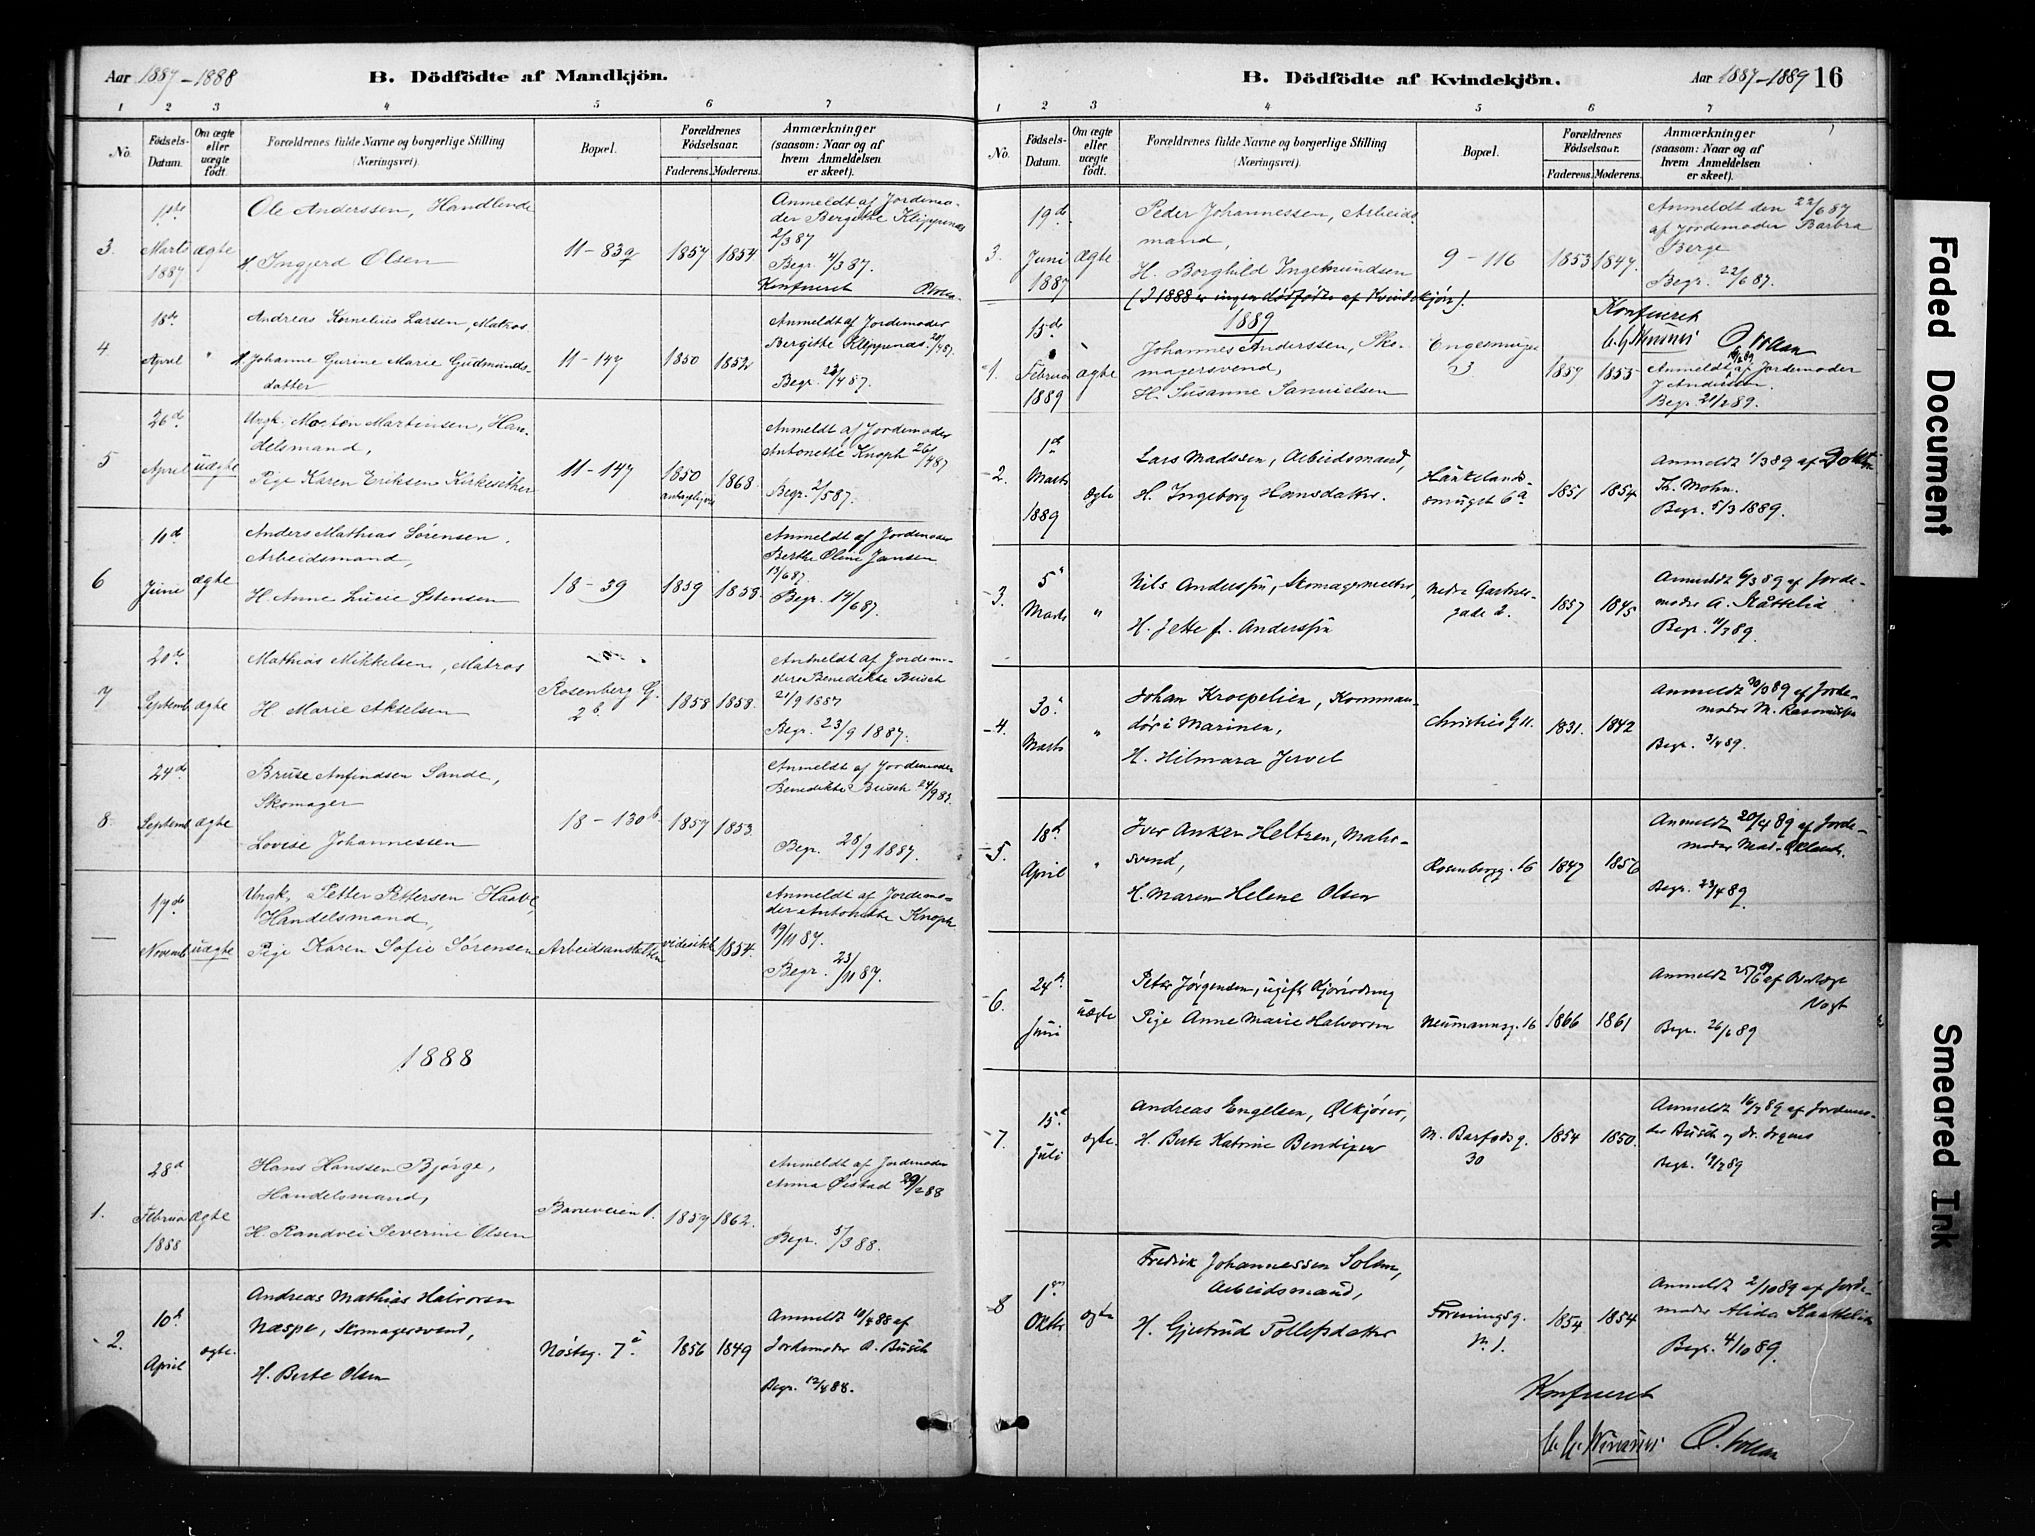 Aar 1887-1888
B. Dödfödte af Mandkjön.
1 2 3 4 5 6 7
No.
Födsels-Datum.
Om ægte eller uægte födt.
Forældrenes fulde Navne og borgerlige Stilling (Næringsvei).
Bopæl.
Forældrenes Födselsaar.
Faderens. Moderens.
Anmærkninger (saasom: Naar og af hvem Anmeldelsen er skeet).
3. Marts 1887 ægte
Ole Anderssen, Handlende
H. Ingjerd Olsen
11-83a 1857 1854
Anmeldt af Jordemoder Bergitte Klippenæs 2/3 87
Begr. 4/3 87.
Konfereret
4 18de April "
Andreas Kornelius Larsen, Matros
H. Johanne Gurine Marie Gudmundsdatter
11-147 1850 1852
Anmeldt af Jordemoder
Bergitte Klippenæs
Begr.
5 26de April uægte
Ungk. Morten Martensen, Handelsmand,
Pige Karen Eriksen Kirkesether
11-147 1850 antagelgvis 1868
Anmeldt af Jordemoder
Antonette Knoph 26/4 87
Begr. 2/5 87.
6 10de Juni ægte
Anders Mathias Sørensen,
Arbeidsmand,
H. Anne Lucie Stensen
18-39 1859 1858.
Anmeldt af Jordemoder
Berthe Oline Jansen
13/6 87.
Begr. 14/6 87.
7 20de Septemb ægte
Mathias Mikkelsen, Matros
H Marie Akselsen
Rosenberg G. 2b. 1858 1858.
Anmeldt af Jordemoderen Benedikte Busch
21/9 1887
Begr. 23/9 1887.
8. 24de Septemb ægte
Bruse Anfindsen Sande,
Skomager
Lovise Johannessen
18-130b. 1857 1853.
Anmeldt af Jordemoder
Benedikte Busch
Begr. 28/9 1887.
— 19de Novemb uægte
Ungk. Petter Pettersen Haave,
Handelsmand,
Pige Karen Sofie Sørensen
Arbeidsanstalten vides ikke 1854.
Anmeldt af Jordemoder Antonette Knoph
19/11 87.
Begr. 23/11 87.
1888
1. 28d Februar 1888 ægte
Hans Hanssen Bjørge,
Handelsmand,
H. Randvei Severine Olsen
Baneveien 1. 1859 1862.
Anmeldt af Jordemoder
Anna Øistad 29/2 88
Begr. 5/3 88.
2. 10d April ægte.
Andreas Mathias Halvorsen
Næspe, Skomagersvend,
H. Berte Olsen
Nøsteg. 7a 1856 1849
Anmeldt 10/4 88 af
Jordemoder B. Busch
Begr. 12/4 88.
B. Dödfödte af Kvindekjön.
Aar 1887-1889 16
1 2 3 4 5 6 7
No.
Födsels-Datum.
Om ægte eller uægte födt.
Forældrenes fulde Navne og borgerlige Stilling (Næringsvei).
Bopæl.
Forældrenes Födselsaar.
Faderens. Moderens.
Anmærkninger (saasom: Naar og af hvem Anmeldelsen er skeet).
3. 19de Juni 1887 ægte
Peder Johannessen, Arbeidsmand,
H. Borghild Ingemundsen
9-116 1853 1847.
Anmeldt den 22/6 87
af Jordemoder Barbra
Berge
Begr. 22/6 87.
(I 1888 er ingen dødfødte af Kvindekjøn).
Konfereret
1889
1. 15de Februar 1889 ægte
Johannes Anderssen, Skomagersvend,
H. Susanne Samuelsen
Engesmuget 3 1859 1855
Anmeldt af Jordemoder
J. Anderssen.
Begr. 21/2 89.
2. 1d Marts 1889 ægte
Lars Madssen, Arbeidsmand,
H. Ingeborg Hansdatter.
Haukelandssmuget 6a 1851 1854
Anmeldt 1/3 89 af Doktor
Th. Mohn.
Begr. 5/3 1889.
3. 5d Marts "
Nils Anderssen, Skomagermester,
H. Jette f. Anderssen
Nedre Gartnergade 2. 1857 1845
Anmeldt 6/3 89 af Jordemoder A. Skåttelid
Begr. 11/3 89.
4. 30d Marts "
Johan Kroepelien, Kommandør i Marinen,
H. Hilmara Jervel
Christies G 11. 1831. 1842
Anmeldt 30/3 89 af Jordemoder M. Rasmussen
Begr. 3/4 89.
5. 18d April "
Iver Anken Heltzen, Malersvend,
H. Maren Helene Olsen
Rosenbergg. 16 1847 1856
Anmeldt 20/4 89 af Jordemoder
Begr. 23/4 89.
6. 24d Juni uægte
Peter Jørgensen, ugift Kjøredreng
Pige Anne Marie Halvorsen
Neumannsg. 16 1866 1861
Anmeldt 25/6 89 af
Vogt
Begr. 26/6 89
7. 15d Juli ægte.
Andreas Engelsen, Ølkjører,
H. Berte Katrine Bendixen
M. Barfodsg. 30 1854 1850.
Anmeldt 16/7 89 af Jordemoder Busch og Dr.
Begr. 19/7 89
8 1ste Oktbr ægte
Fredrik Johannessen Solem,
Arbeidsmand,
H. Gjertrud Tollefsdatter
Foreningsg. No 1. 1854. 1854
Anmeldt 2/10 89 af Jordemoder Alida Skaattelid
Begr. 4/10 89.
Konfereret
Faded Document
Smeared Ink